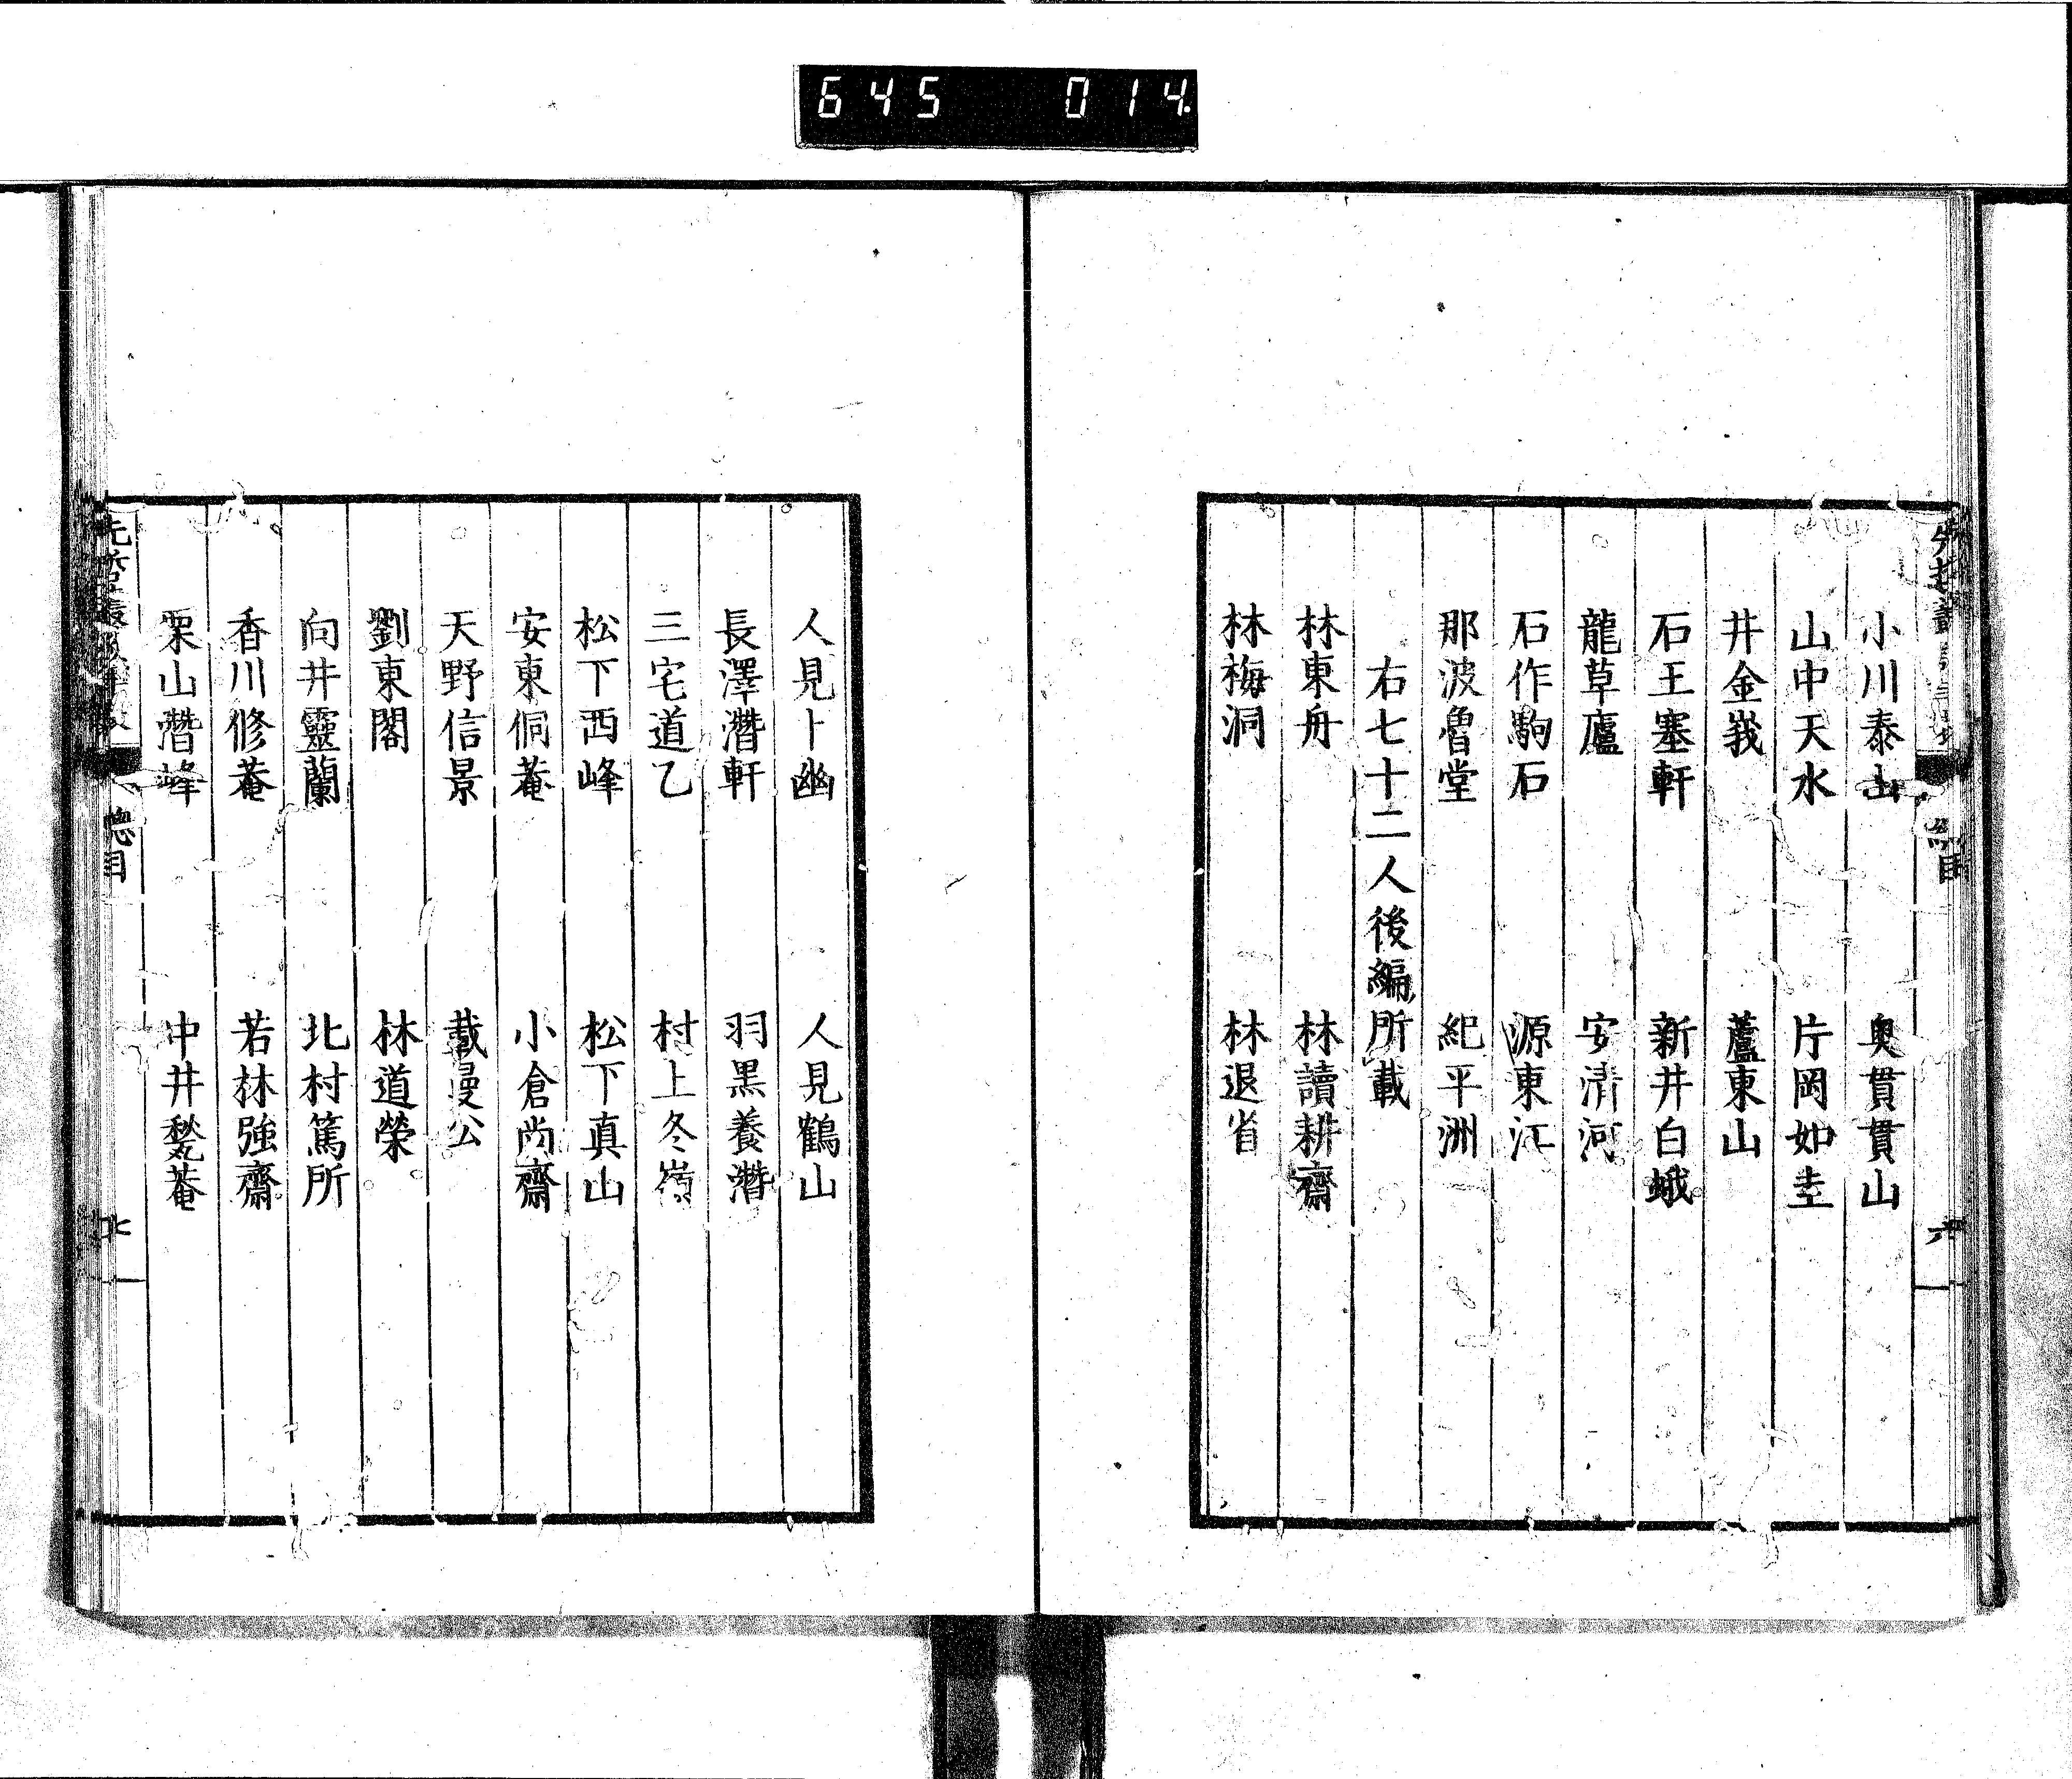 645 014
小川泰山 奧貫貫山
山中天水 片岡如圭
井金峩 蘆東山
石王塞軒 新井白蛾
龍草廬 安清河
石作駒石 源東江
那波魯堂 紀平洲
右七十二人後編所載
林東舟 林讀耕齋
林梅洞 林退省
總目
六
人見卜幽 人見鶴山
長澤潛軒 羽黑養潛
三宅道乙 村上冬嶺
松下西峰 松下真山
安東侗菴 小倉尚齋
天野信景 戴曼公
劉東閣 林道榮
向井靈蘭 北村篤所
香川修菴 若林強齋
栗山潛峰 中井甃菴
總目